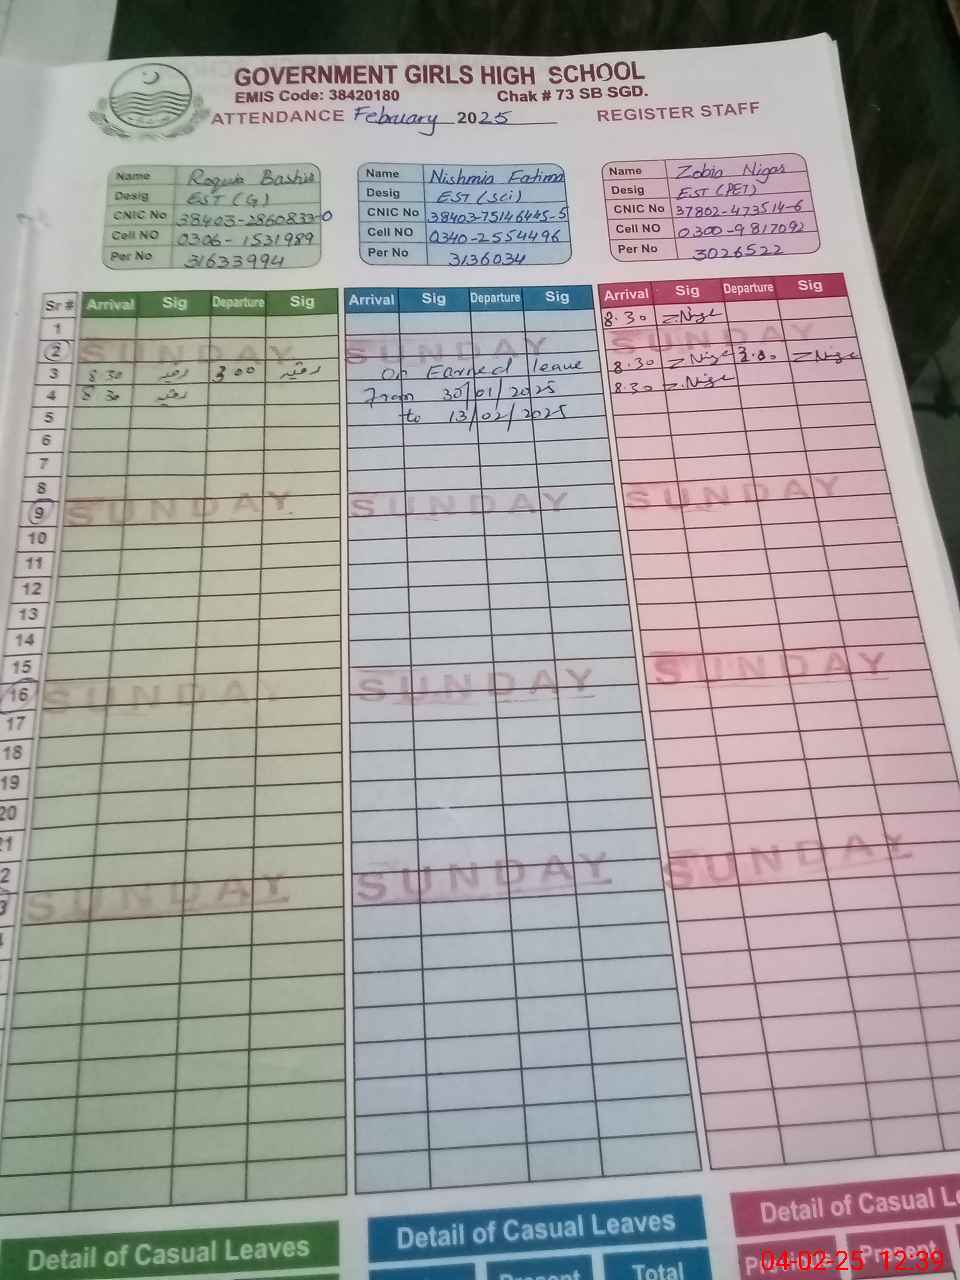 GOVERNMENT GIRLS HIGH SCHOOL
EMIS Code: 38420180 Chak # 73 SB SGD.
ATTENDANCE February 2025 REGISTER STAFF
Name Roquia Bashir
Desig EST (G)
CNIC No 38403-2860833-0
Cell NO 0306-1531989
Per No 31633994
Name Nishmia Fatima
Desig EST (Sci)
CNIC No 38403-75146445-5
Cell NO 0340-2554496
Per No 3136034
Name Zobia Nigar
Desig EST (PET)
CNIC No 37802-473514-6
Cell NO 0300-9817092
Per No 3026522
Sr # Arrival Sig Departure Sig Arrival Sig Departure Sig Arrival Sig Departure Sig
1 8.30 Z.Nigar
2 SUNDAY SUNDAY SUNDAY
3 8.30 رقیہ 3.00 رقیہ On Earned leave 8.30 Z Nigar 3.00 Z Nigar
4 8.30 رقیہ From 30/01/2025 8.30 Z.Nigar
5 to 13/02/2025
6
7
8
9 SUNDAY SUNDAY SUNDAY
10
11
12
13
14
15
16 SUNDAY SUNDAY SUNDAY
17
18
19
20
21
2
3 SUNDAY SUNDAY SUNDAY
Detail of Casual Leaves Detail of Casual Leaves Detail of Casual Le
Present Total Present
04-02-25 12:39